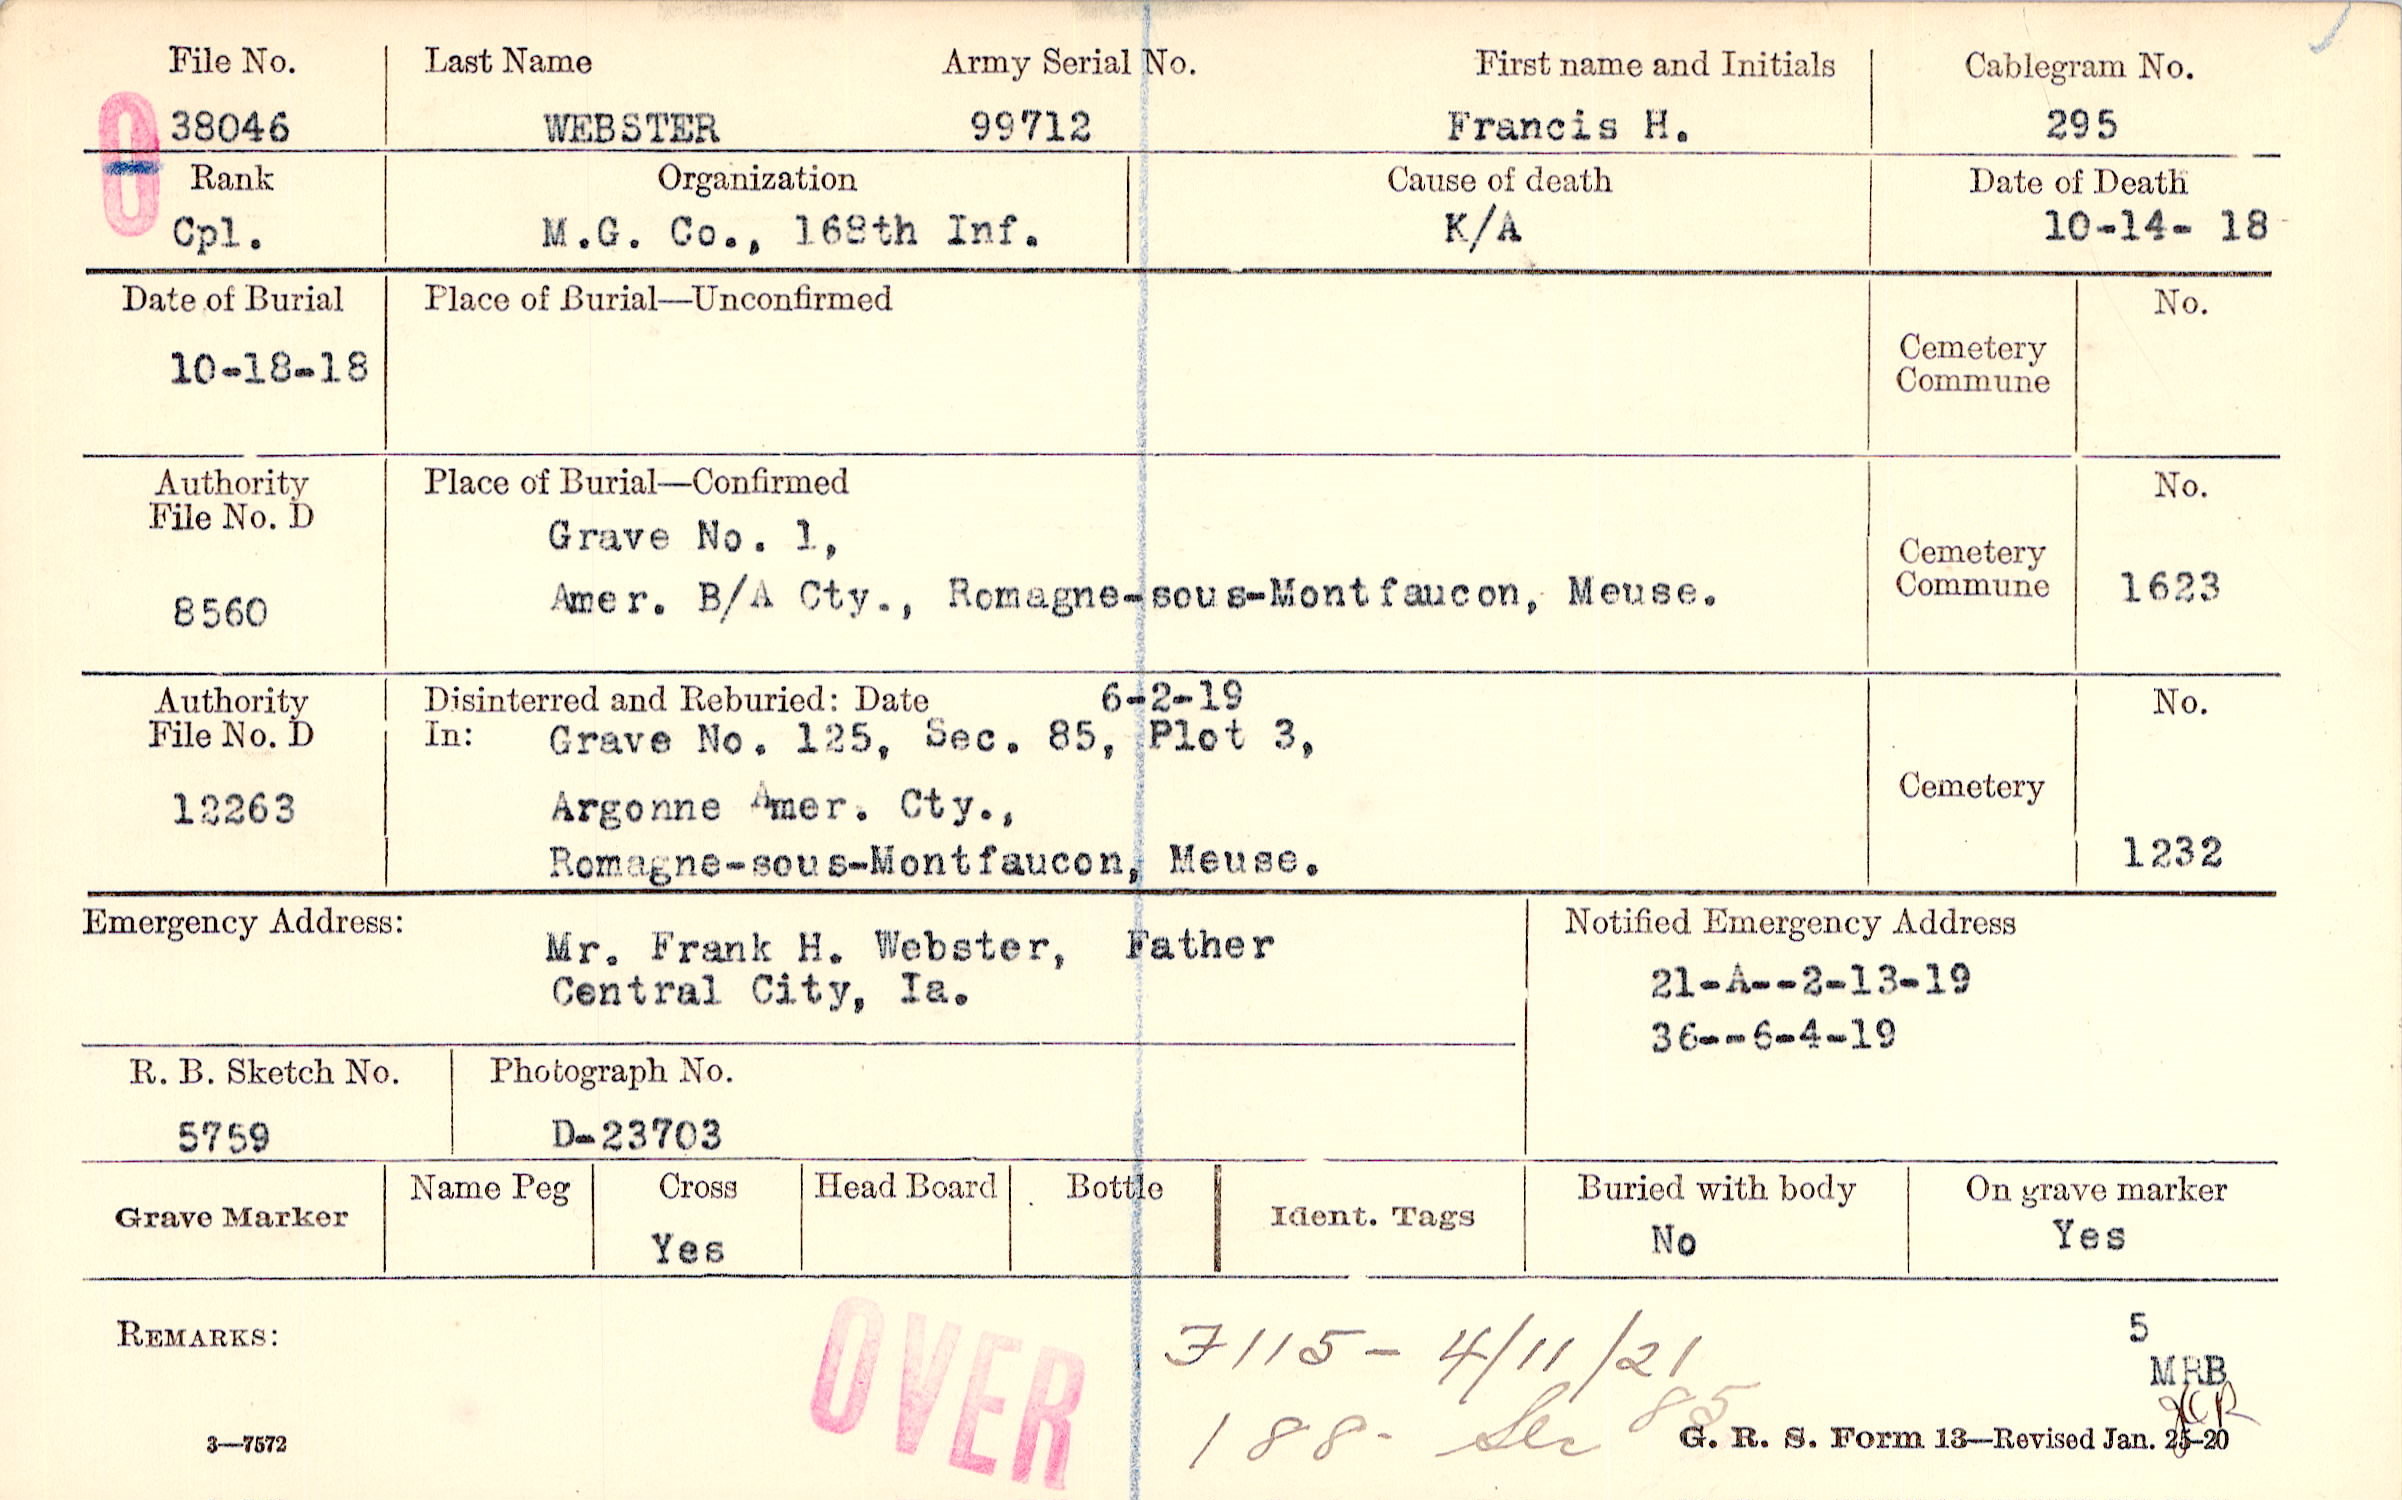 File No. Last Name Army Serial No. First name and Initials Cablegram No.
38046 WEBSTER 99712 Francis H. 295
Rank Organization Cause of death Date of Death
Cpl. M.G. Co., 168th Inf. K/A 10-14- 18
Date of Burial Place of Burial—Unconfirmed No.
10-18-18 Cemetery
Commune
Authority Place of Burial—Confirmed No.
File No. D
Grave No. 1,
Cemetery
8560 Amer. B/A Cty., Romagne-sous-Montfaucon, Meuse. Commune 1623
Authority Disinterred and Reburied: Date 6-2-19 No.
File No. D In: Grave No. 125, Sec. 85, Plot 3,
Cemetery
12263 Argonne Amer. Cty.,
Romagne-sous-Montfaucon, Meuse. 1232
Emergency Address: Notified Emergency Address
Mr. Frank H. Webster, Father 21-A--2-13-19
Central City, Ia.
36--6-4-19
R. B. Sketch No. Photograph No.
5759 D-23703
Name Peg Cross Head Board Bottle Buried with body On grave marker
Grave Marker Ident. Tags
Yes No Yes
REMARKS: OVER 7115- 4/11/21 5
MRB
188- Sec 85
3—7572 G. R. S. Form 13—Revised Jan. 25-20